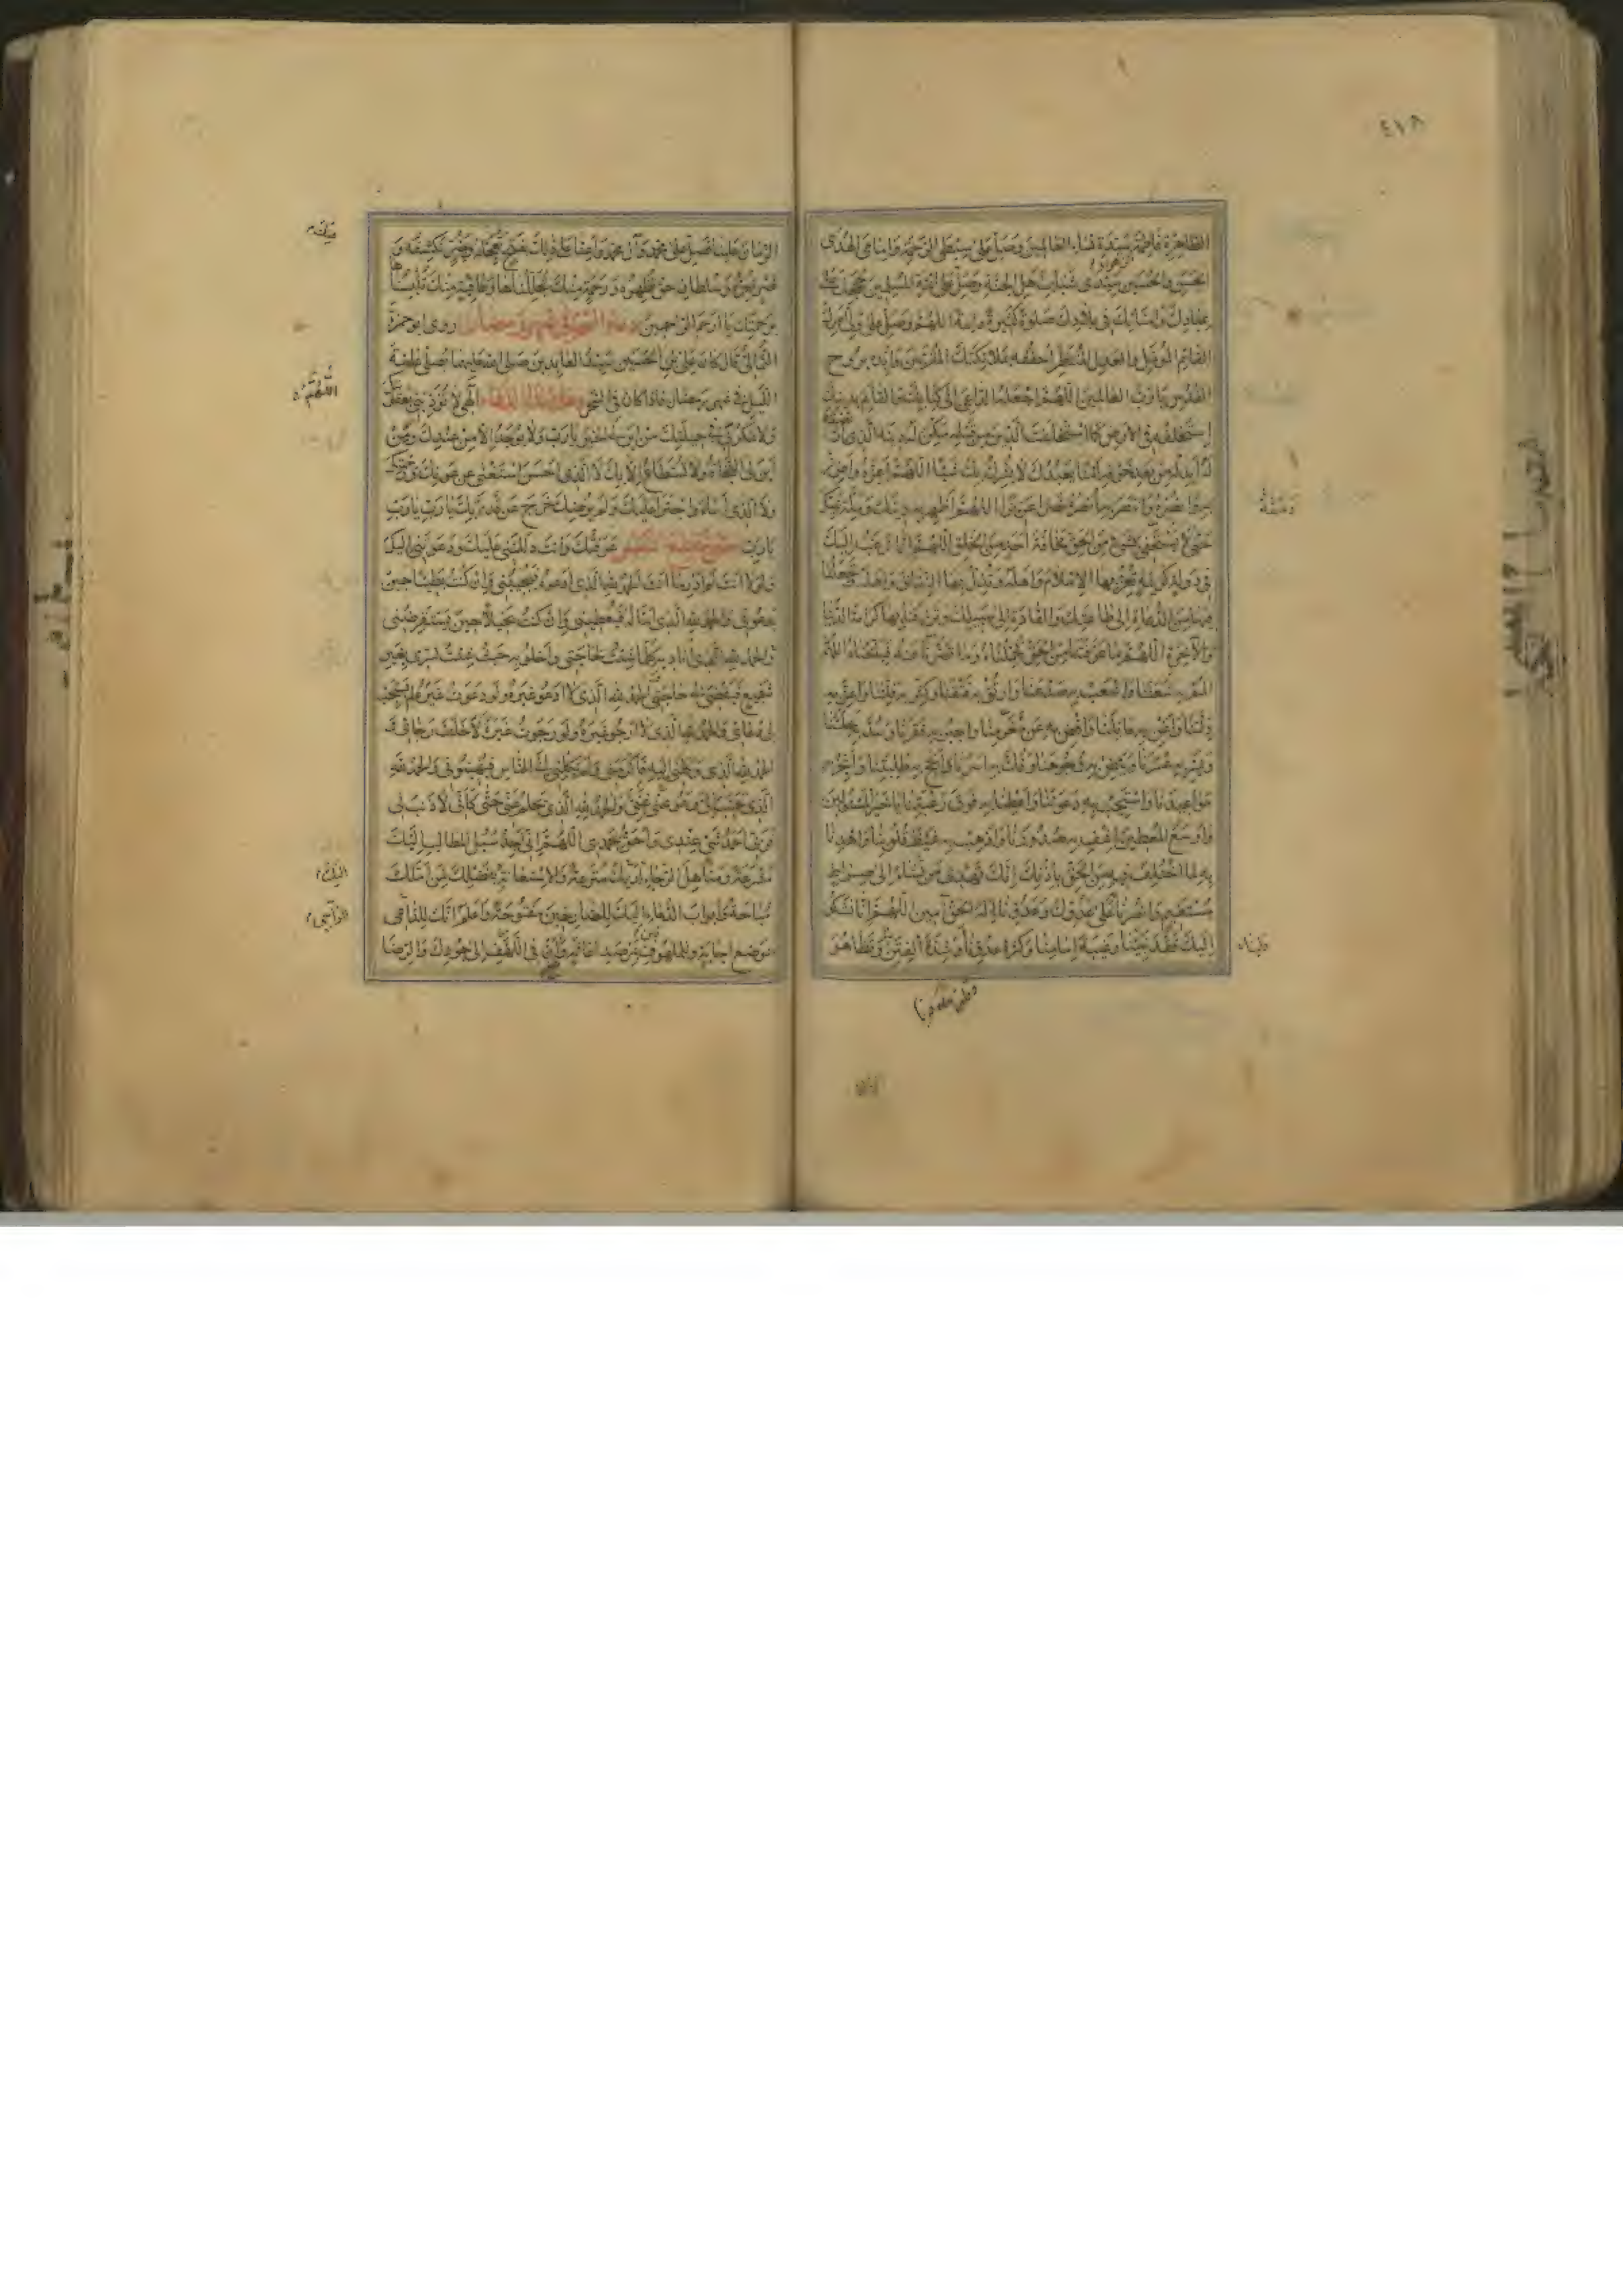 ٤١٨
الطاهرة فاطمة سيدة نساء العالمين وصل على سبطي الرحمة وامامي الهدى
الحسن والحسين سيدي شباب اهل الجنة وصل على ائمة المسلمين حججك على
عبادك وامنائك في بلادك صلوة كثيرة دائمة اللهم وصل على ولي امرك
القائم المؤمل والعدل المنتظر احففه بملائكتك المقربين وايده بروح
القدس يا رب العالمين اللهم اجعله الداعي الى كتابك والقائم بدينك
استخلفه في الارض كما استخلفت الذين من قبله مكن له دينه الذي
له ابدله من بعد خوفه امنا يعبدك لا يشرك بك شيئا اللهم اعزه واعزز
به وانصره وانتصر به وانصره نصرا عزيزا اللهم اظهر به دينك وملة نبيك
حتى لا يستخفي بشيء من الحق مخافة احد من الخلق اللهم انا نرغب اليك
في دولة كريمة تعز بها الاسلام واهله وتذل بها النفاق واهله وتجعلنا
فيها من الدعاة الى طاعتك والقادة الى سبيلك وترزقنا بها كرامة الدنيا
والآخرة اللهم ما عرفتنا من الحق فحملناه وما قصرنا عنه فبلغناه اللهم
المم به شعثنا واشعب به صدعنا وارتق به فتقنا وكثر به قلتنا واعز به
ذلتنا واغن به عائلنا واقض به عن مغرمنا واجبر به فقرنا وسد به خلتنا
ويسر به عسرنا وبيض به وجوهنا وفك به اسرنا وانجح به طلبتنا وانجز به
مواعيدنا واستجب به دعوتنا واعطنا به فوق رغبتنا يا خير المسئولين
واوسع المعطين اشف به صدورنا واذهب به غيظ قلوبنا واهدنا
به لما اختلف فيه من الحق باذنك انك تهدي من تشاء الى صراط
مستقيم وانصرنا على عدوك وعدونا اله الحق آمين اللهم انا نشكو
اليك فقد نبينا وغيبة امامنا وكثرة عدونا وشدة الفتن وتظاهر
الزمان علينا فصل على محمد وآل محمد واعنا على ذلك بفتح تعجله وبضر تكشفه و
نصر تعزه وسلطان حق تظهره ورحمة منك تجللناها وعافية منك تلبسناها
برحمتك يا ارحم الراحمين دعاء السحر في شهر رمضان روى ابو حمزة
الثمالي قال كان علي بن الحسين سيد العابدين صلى الله عليهما يصلي عامة
الليل في شهر رمضان فاذا كان في السحر دعا بهذا الدعاء الهي لا تؤدبني بعقوبتك
ولا تمكر بي في حيلتك من اين لي الخير يا رب ولا يوجد الا من عندك ومن
اين لي النجاة ولا تستطاع الا بك لا الذي احسن استغنى عن عونك ورحمتك
ولا الذي اساء واجترأ عليك ولم يرضك خرج عن قدرتك يا رب يا رب
يا رب حتى ينقطع النفس بك عرفتك وانت دللتني عليك ودعوتني اليك
ولولا انت لم ادر ما انت الحمد لله الذي ادعوه فيجيبني وان كنت بطيئا حين
يدعوني والحمد لله الذي اسأله فيعطيني وان كنت بخيلا حين يستقرضني
والحمد لله الذي اناديه كلما شئت لحاجتي واخلو به حيث شئت لسري بغير
شفيع فيقضي لي حاجتي الحمد لله الذي لا ادعو غيره ولو دعوت غيره لم يستجب
لي دعائي والحمد لله الذي لا ارجو غيره ولو رجوت غيره لاخلف رجائي و
الحمد لله الذي وكلني اليه فاكرمني ولم يكلني الى الناس فيهينوني والحمد لله
الذي تحبب الي وهو غني عني والحمد لله الذي يحلم عني حتى كأني لا ذنب لي
فربي احمد شيء عندي واحق بحمدي اللهم اني اجد سبل المطالب اليك
مشرعة ومناهل الرجاء لديك مترعة والاستعانة بفضلك لمن املك
مباحة وابواب الدعاء اليك للصارخين مفتوحة واعلم انك للراجي
بموضع اجابة وللملهوفين بمرصد اغاثة وان في اللهف الى جودك والرضا
منك
اللهم
اليك
الراجي